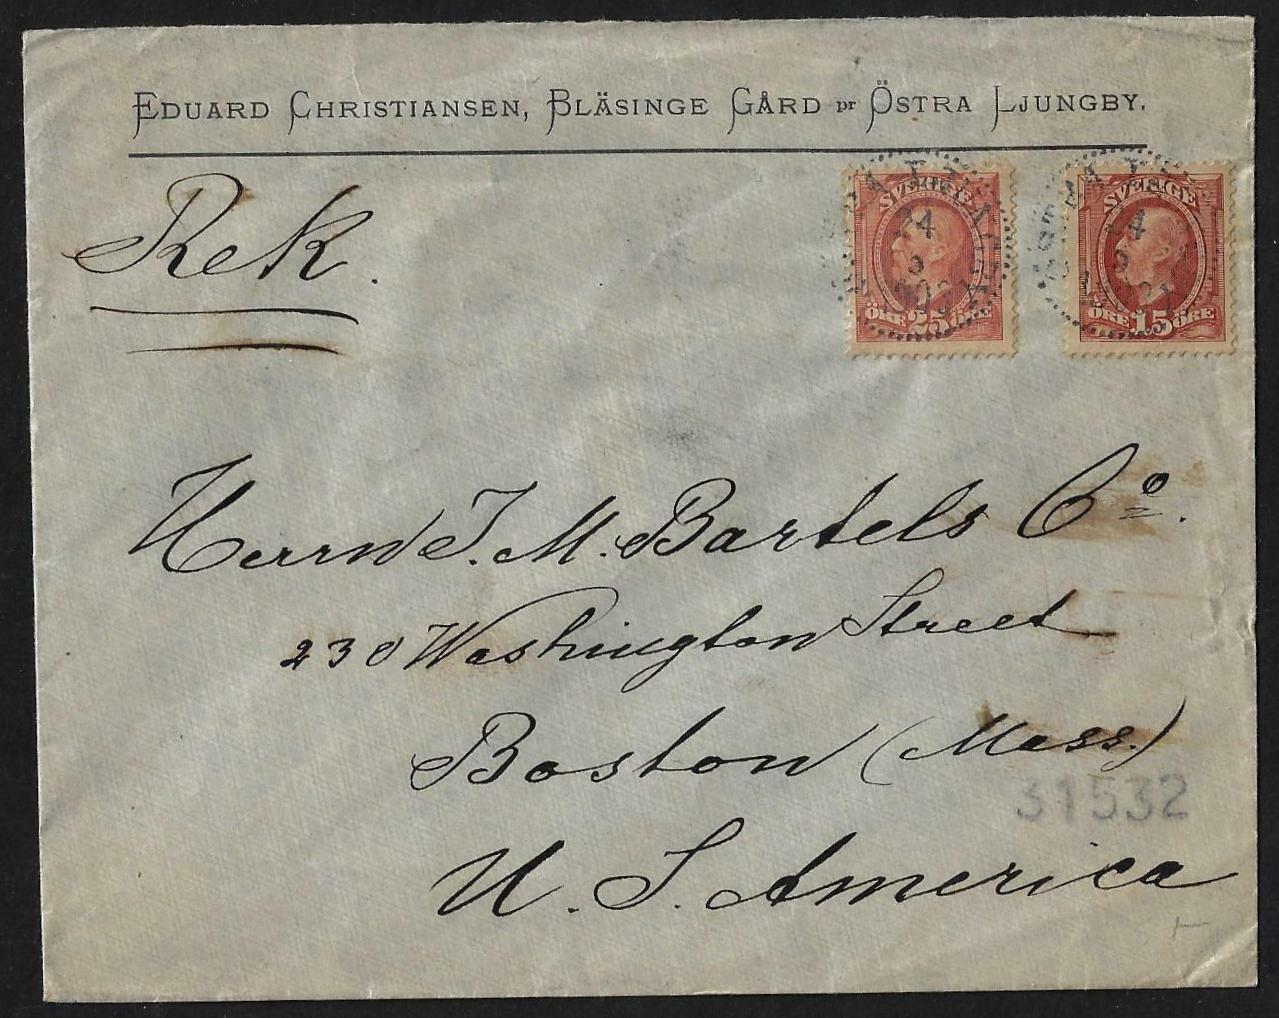 EDUARD CHRISTIANSEN, BLÄSINGE GÅRD pr ÖSTRA LJUNGBY.
Rek.
SVERIGE
ÖRE 25 ÖRE
SVERIGE
ÖRE 15 ÖRE
24
9
Herrn J. M. Bartels Co.
230 Washington Street
Boston (Mass.)
31532
U. S. America